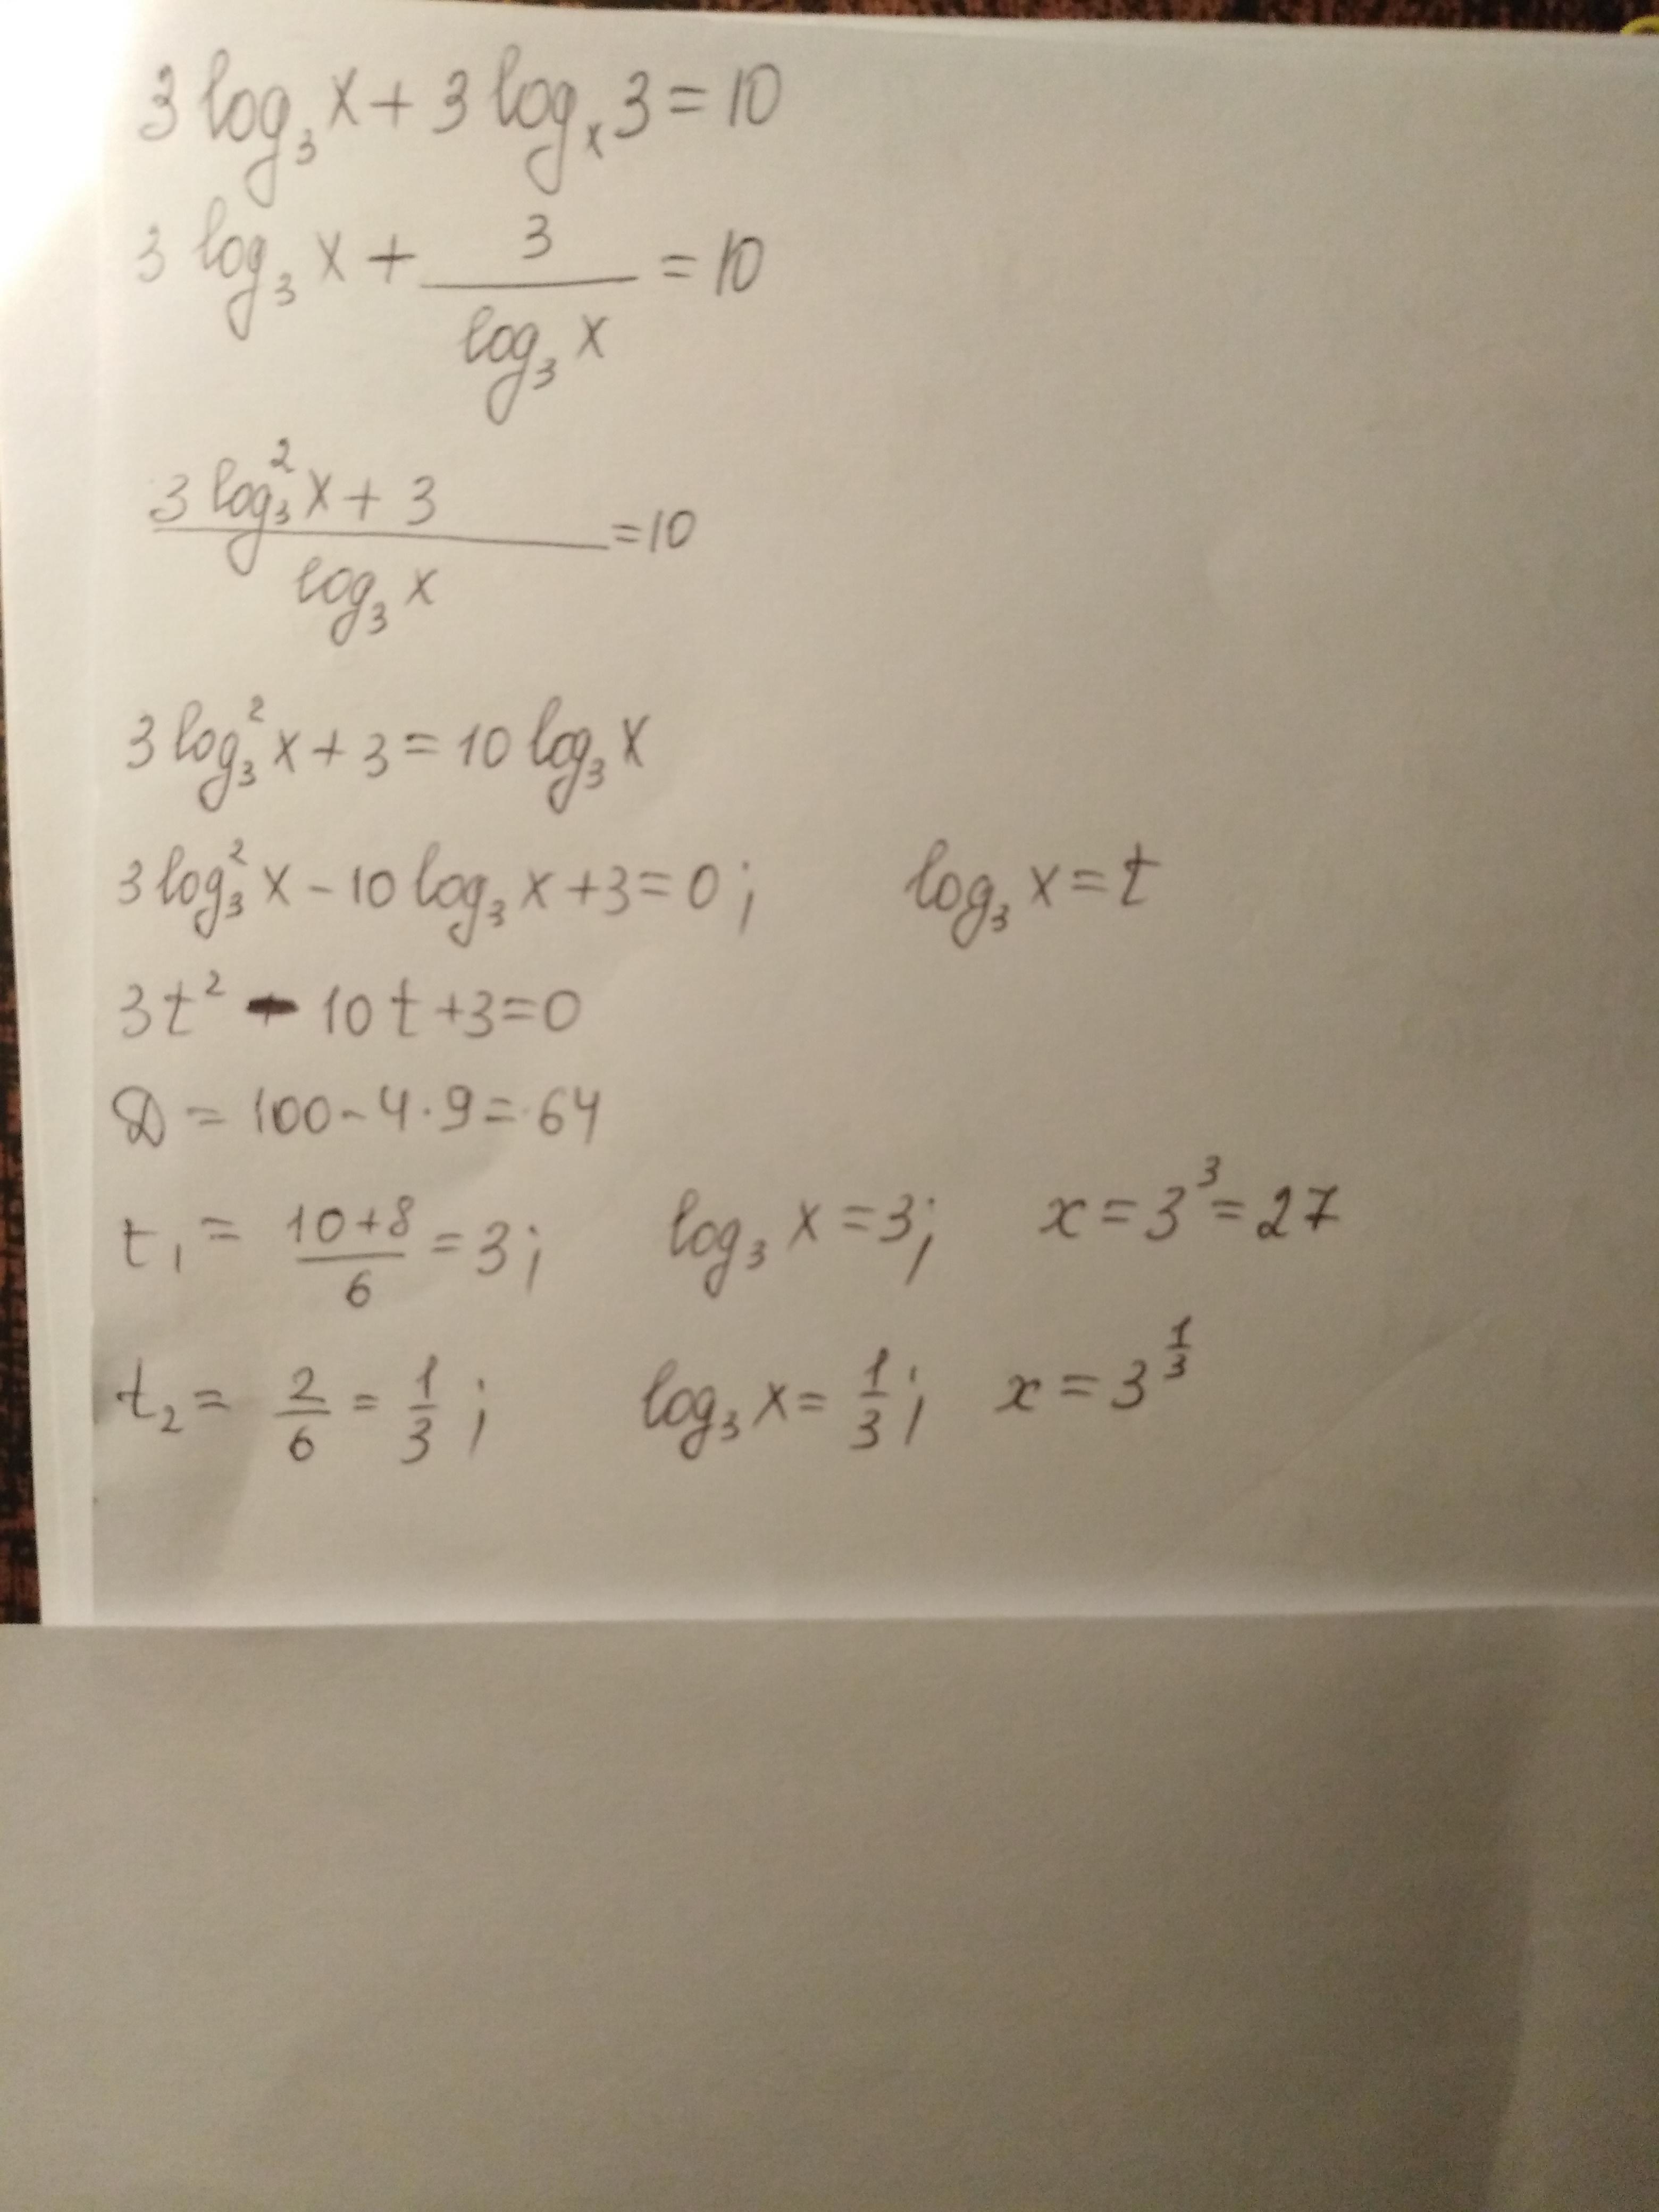 3 log₃ x + 3 logₓ 3 = 10
3 log₃ x + 3 / log₃ x = 10
(3 log₃² x + 3) / log₃ x = 10
3 log₃² x + 3 = 10 log₃ x
3 log₃² x - 10 log₃ x + 3 = 0; log₃ x = t
3t² - 10t + 3 = 0
D = 100 - 4 · 9 = 64
t₁ = (10+8)/6 = 3; log₃ x = 3; x = 3³ = 27
t₂ = 2/6 = 1/3; log₃ x = 1/3; x = 3^(1/3)